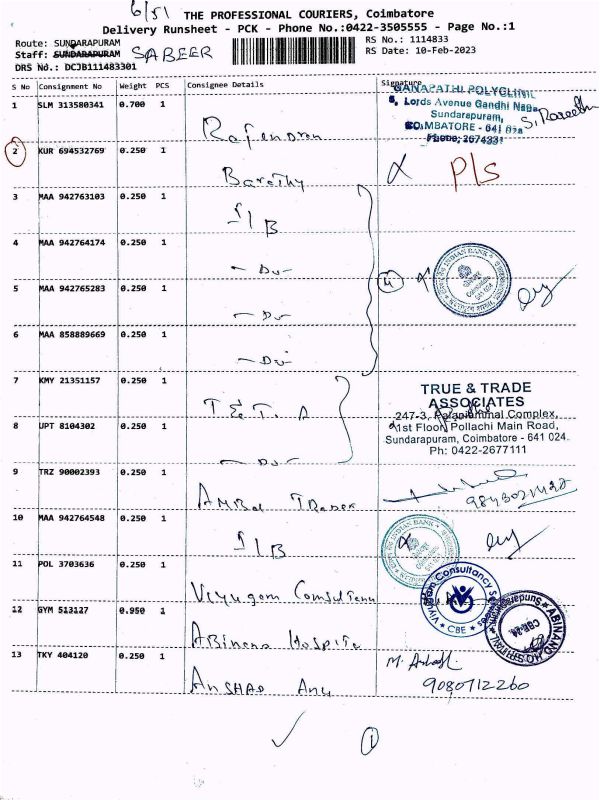 6/51
THE PROFESSIONAL COURIERS, Coimbatore
Delivery Runsheet - PCK - Phone No.:0422-3505555 - Page No.:1
Route: SUNDARAPURAM
RS No.: 1114833
Staff: SUNDARAPURAM SABEER
RS Date: 10-Feb-2023
DRS No.: DCJB111483301
S No Consignment No Weight PCS Consignee Details Signature
1 SLM 313580341 0.700 1 Rajendran
GANAPATHI POLYCLINIC
Lords Avenue Gandhi Naga
Sundarapuram,
COIMBATORE - 641 024
Phone: 2674331
2 KUR 694532769 0.250 1 Barathy P/S
3 MAA 942763103 0.250 1 I/B
4 MAA 942764174 0.250 1 - Do -
INDIAN BANK
Coimbatore
641 024
5 MAA 942765283 0.250 1 - Do -
4
6 MAA 858889669 0.250 1 - Do -
7 KMY 21351157 0.250 1 T & T. A
TRUE & TRADE
ASSOCIATES
247-3, Palaniammal Complex,
1st Floor, Pollachi Main Road,
Sundarapuram, Coimbatore - 641 024.
Ph: 0422-2677111
8 UPT 8104302 0.250 1 - Do -
9 TRZ 90002393 0.250 1 Ambal Trader
10 MAA 942764548 0.250 1 I/B
INDIAN BANK
11 POL 3703636 0.250 1 Viyugam Consultancy
Viyugam Consultancy Services
CBE
12 GYM 513127 0.950 1 Abinand Hospital
ABINAND HOSPITAL
Sundarapuram
CBE-24
13 TKY 404120 0.250 1
9080712260
1